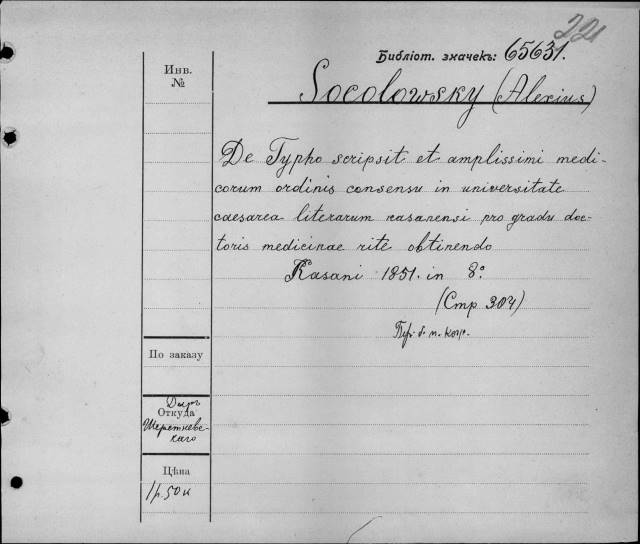 221
Библіот. значекъ: 65631.
Инв.
№
Socolowsky (Alexius)
De Typho scripsit et amplissimi medi-
corum ordinis consensu in universitate
caesarea literarum casanensi pro gradu doc-
toris medicinae rite obtinendo
Kasani 1851. in 8.º
(Стр 304)
По заказу
Откуда
Цѣна
1 р. 50 к